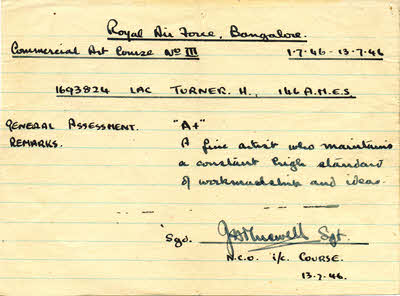 Royal Air Force, Bangalore.
Commercial Art Course No III 1-7-46 - 13-7-46
1693824 LAC TURNER. H., 146 A.M.E.S
GENERAL ASSESSMENT. "A+"
REMARKS. A fine artist who maintains
a constant high standard
of workmanship and ideas.
Sgd. Sgt.
N.C.O i/c. COURSE.
13.7.46.